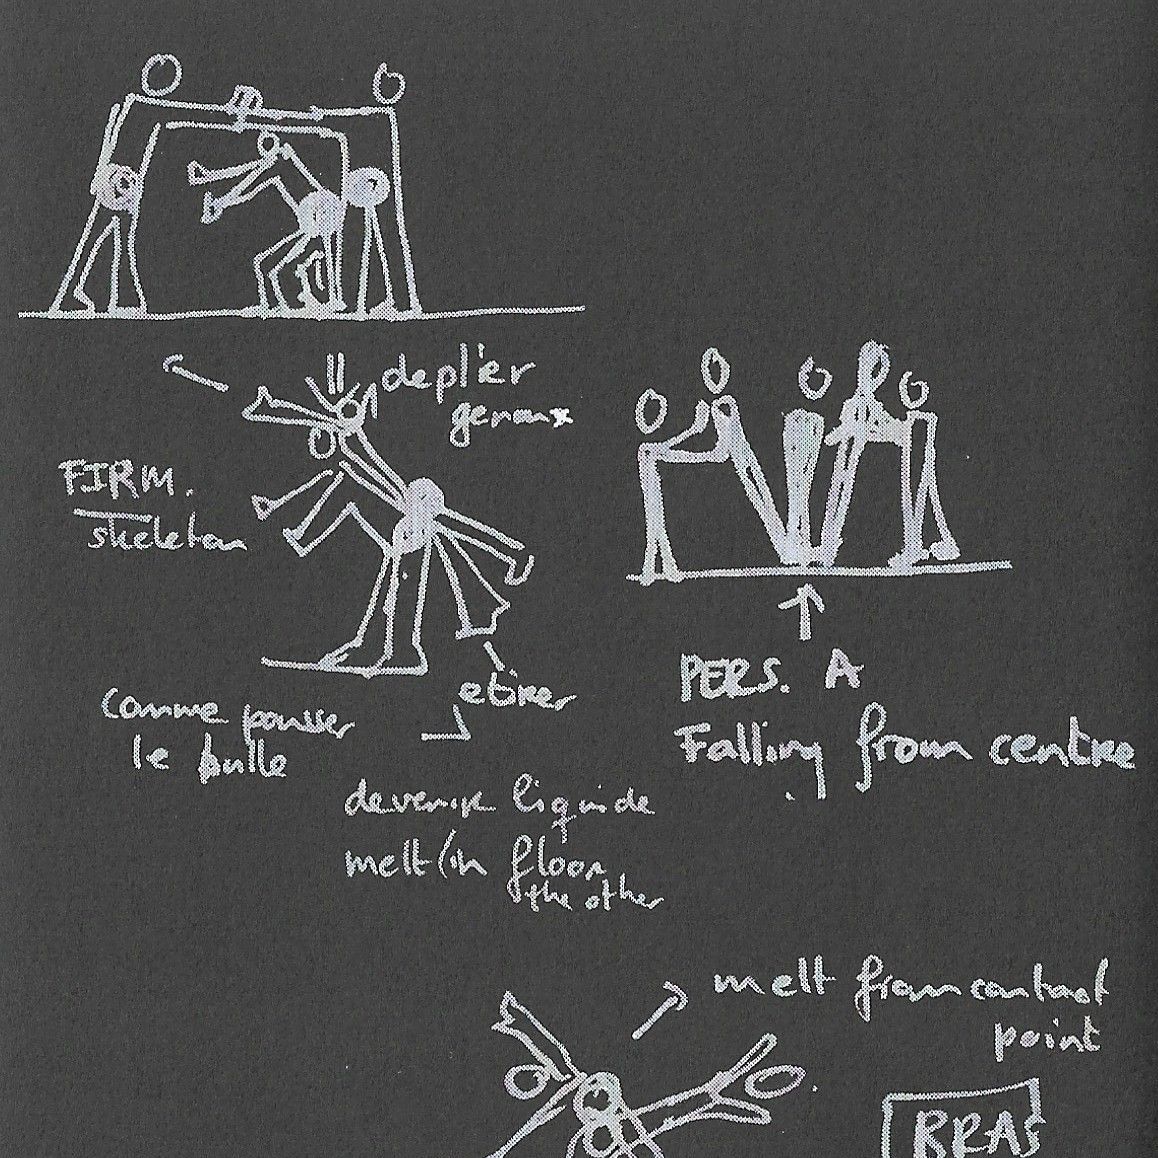 deplier
genoux
FIRM.
skeleton
etirer
comme pousser
le bulle
PERS. A
Falling from centre
devenir liquide
melt (in floor
the other
melt from contact
point
BRAS